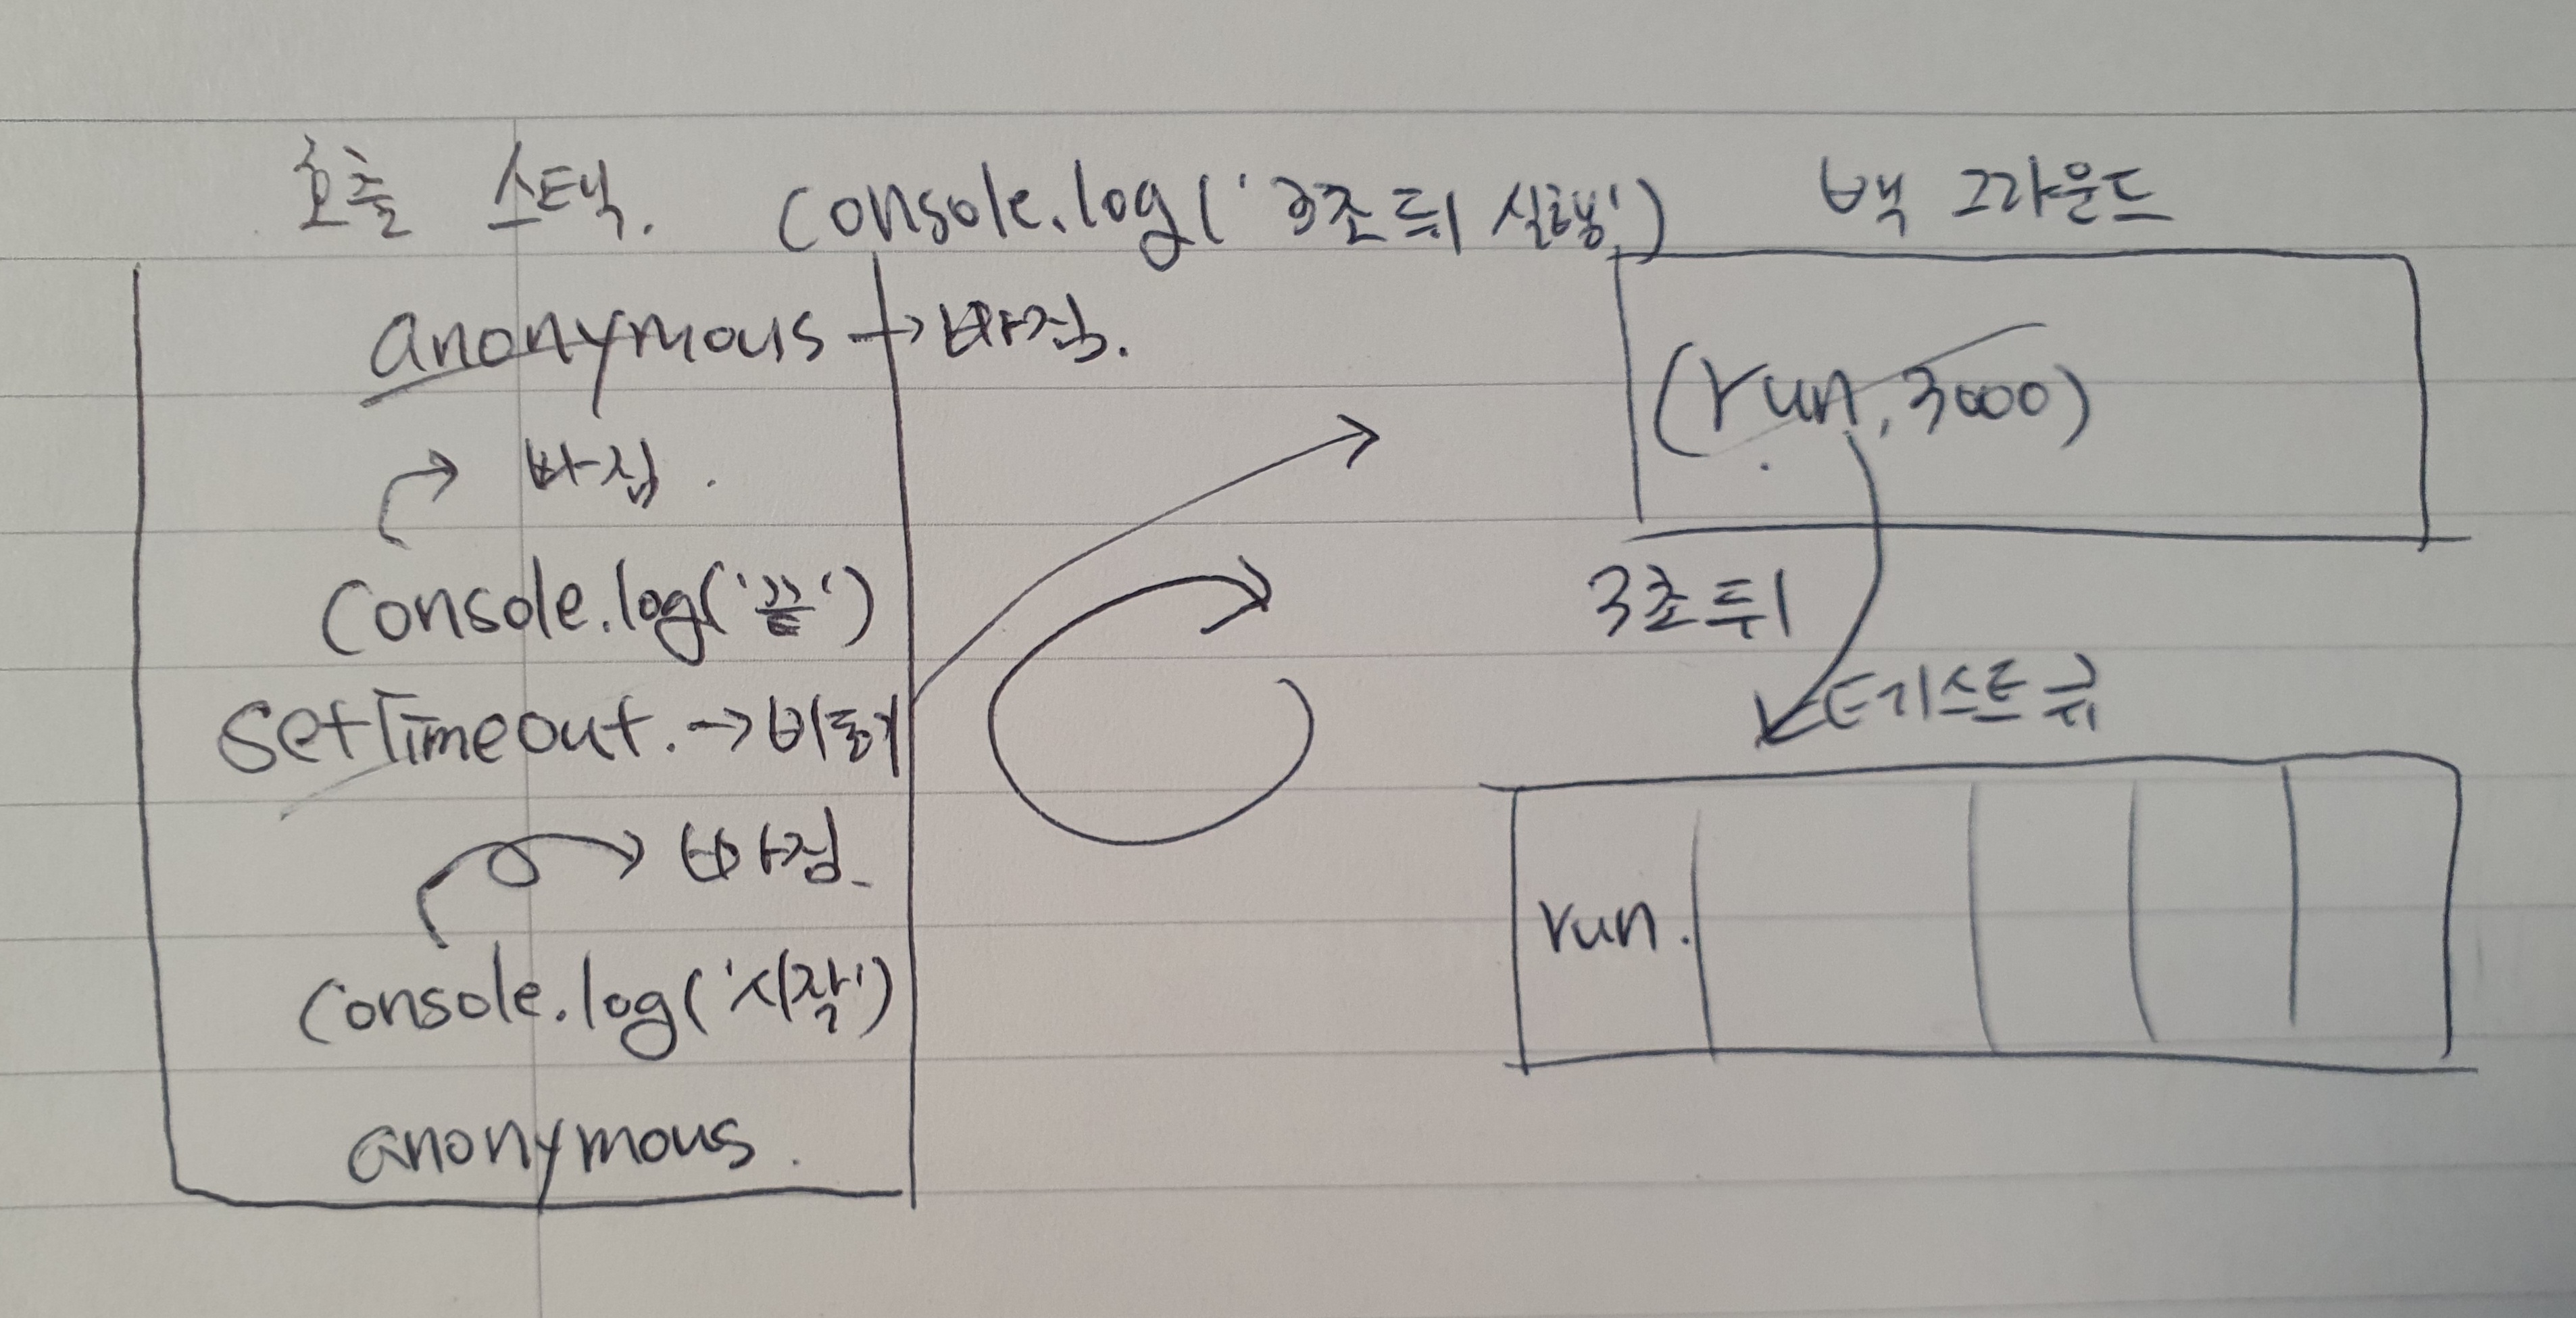 호출 스택. console.log('3초 뒤 실행') 백 그라운드
anonymous → 빠짐.
빠짐.
console.log('끝')
setTimeout. → 비동기
빠짐.
console.log('시작')
anonymous.
(run, 3000)
3초 뒤
테스트 큐
run.